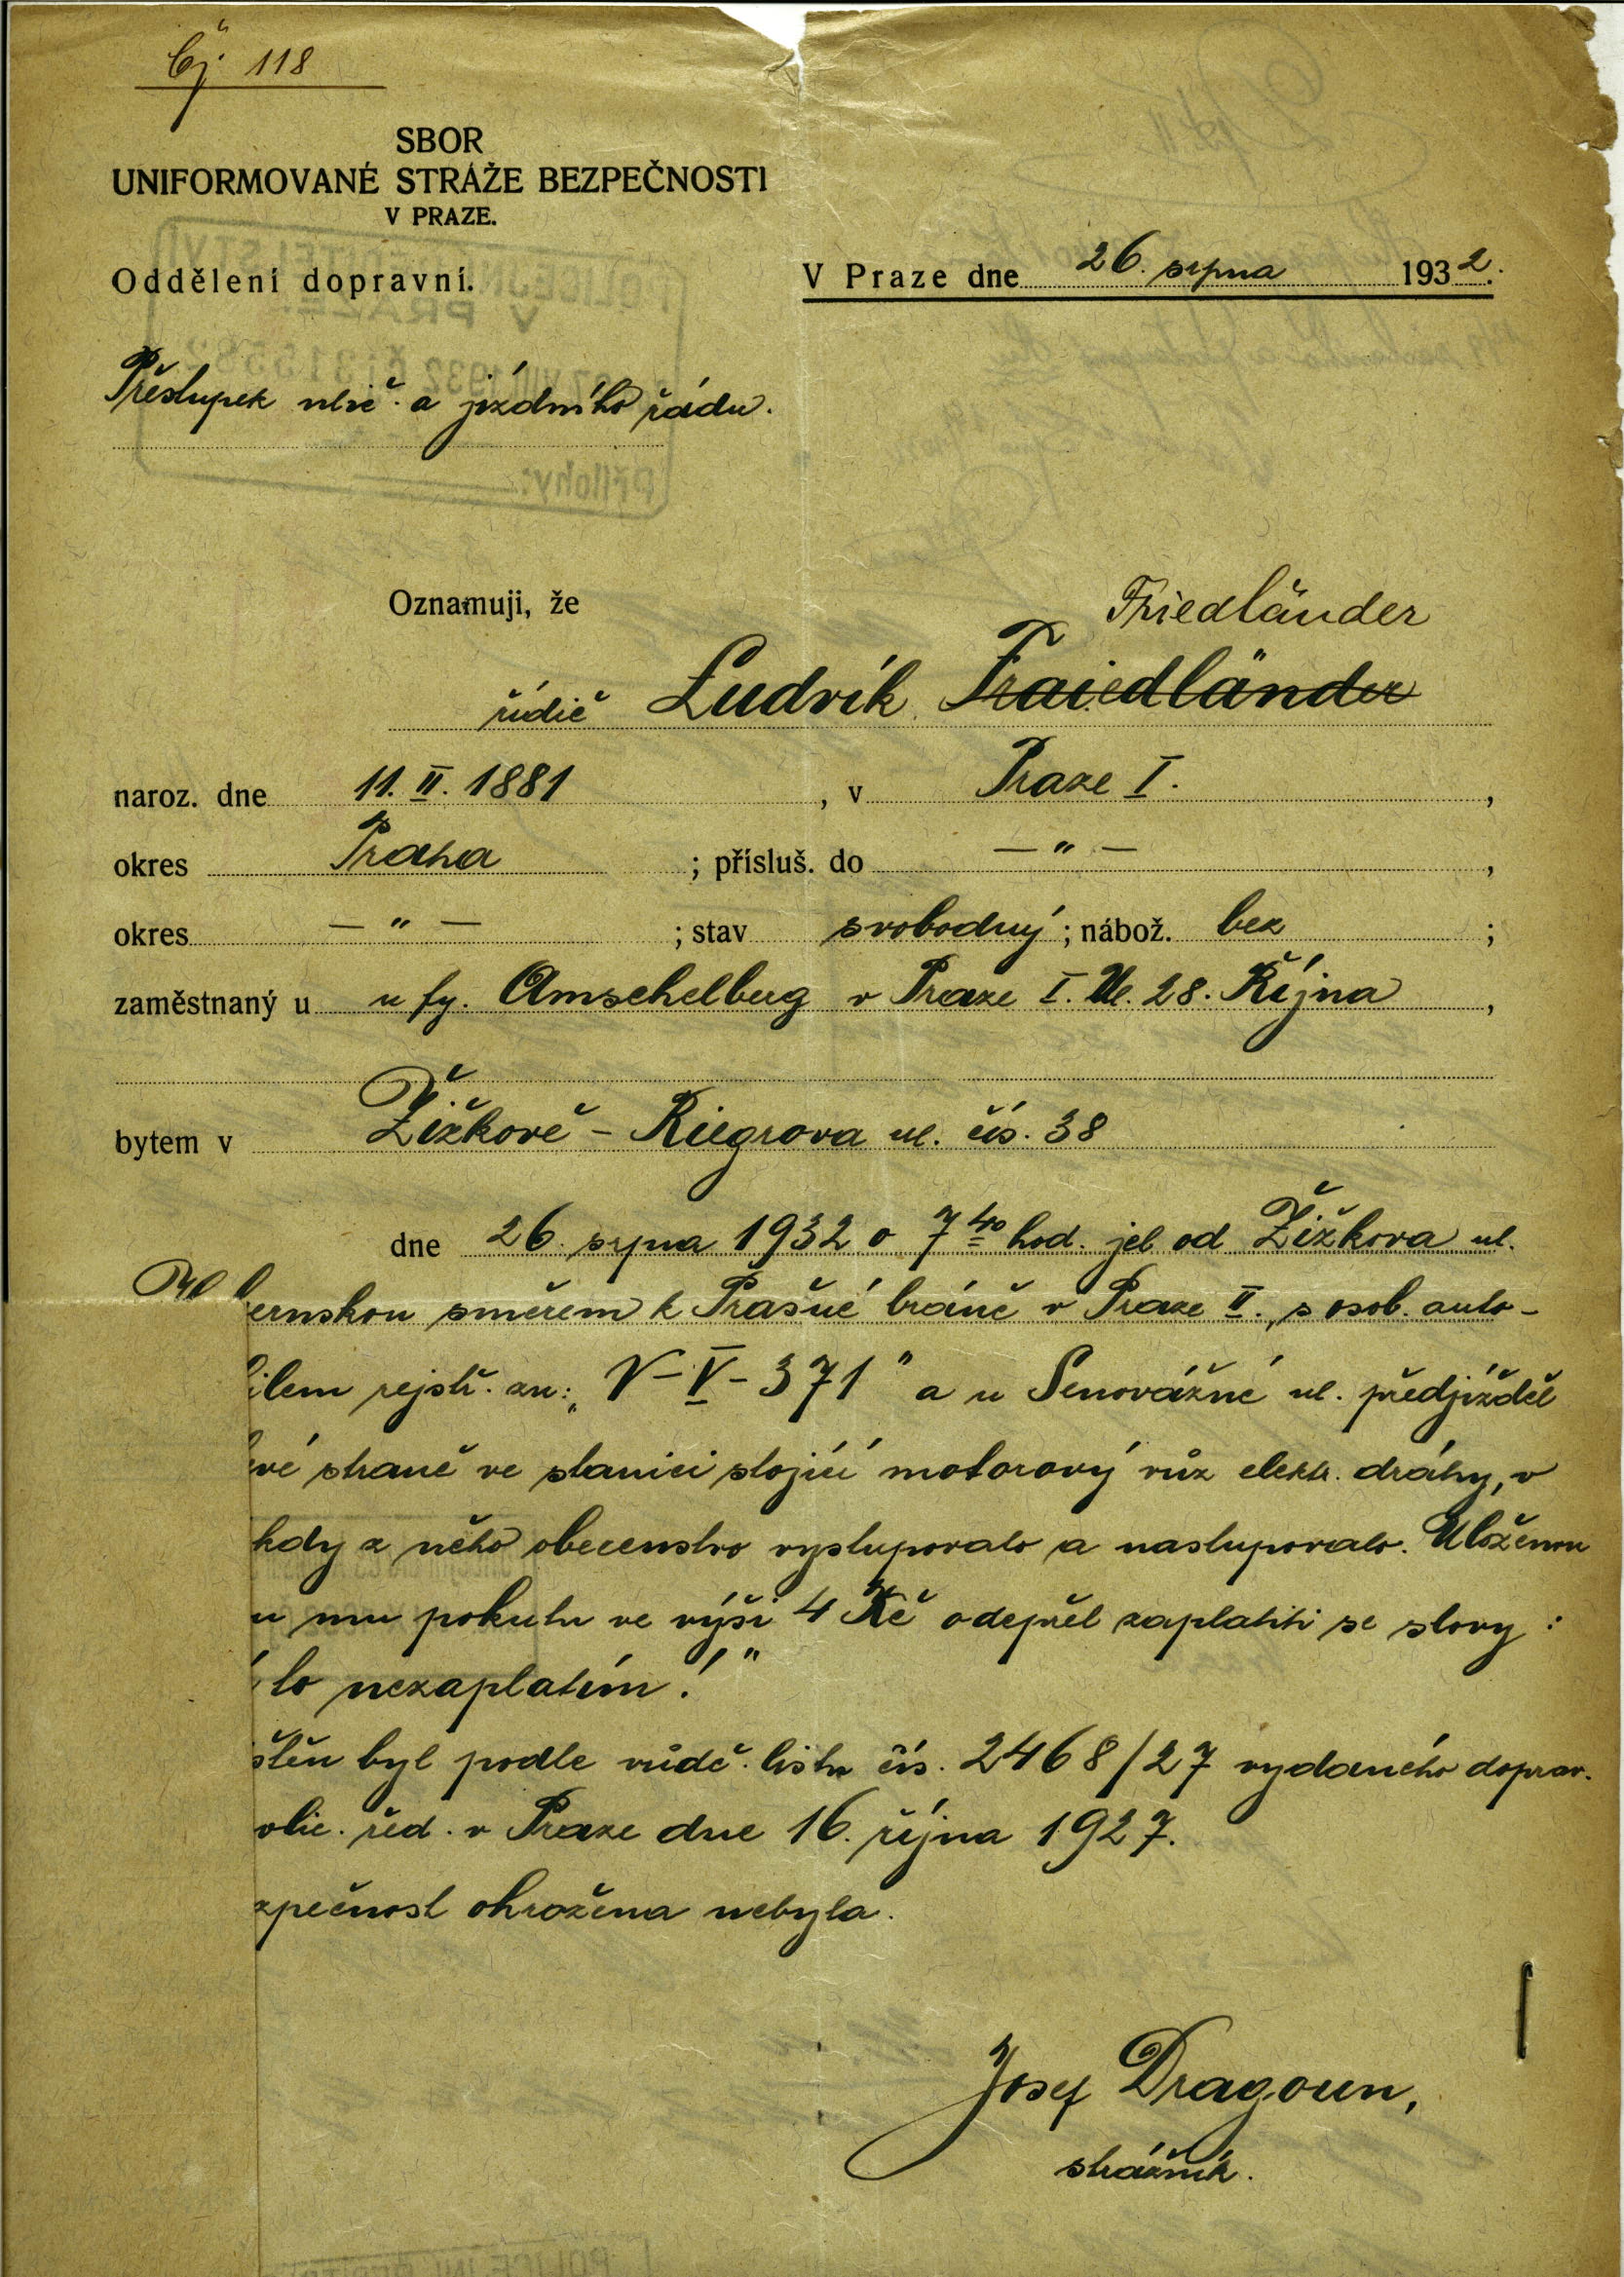 Čj. 118
SBOR
UNIFORMOVANÉ STRÁŽE BEZPEČNOSTI
V PRAZE.
Oddělení dopravní.
V Praze dne 26. srpna 1932.
Přestupek ulič. a jízdního řádu.
Oznamuji, že
Friedländer
řidič Ludvík Fraiedländer
naroz. dne 11. II. 1881, v Praze I.,
okres Praha; přísluš. do — " —,
okres — " —; stav svobodný; nábož. bez;
zaměstnaný u u fy. Amschelberg v Praze I. Ul. 28. Října,
bytem v Žižkově - Riegrova ul. čís. 38
dne 26. srpna 1932 o 7 40 hod. jel od Žižkova ul.
ernskou směrem k Prašné bráně v Praze II., s osob. auto-
ilem rejstř. zn: „V-V-371" a u Senovážné ul. předjížděl
vé straně ve stanici stojící motorový vůz elektr. dráhy, v
kdy z něho obecenstvo vystupovalo a nastupovalo. Uloženou
u mu pokutu ve výši 4 Kč odepřel zaplatiti se slovy:
to nezaplatím!"
štěn byl podle vůdč. listu čís. 2468/27 vydaného doprav.
olic. řed. v Praze dne 16. října 1927.
zpečnost ohrožena nebyla.
Josef Dragoun,
strážník.
POLICEJNÍ ŘEDITELSTVÍ
V PRAZE.
Přílohy: